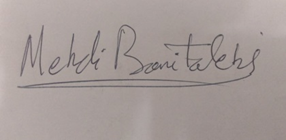 Mehdi Banitalebi